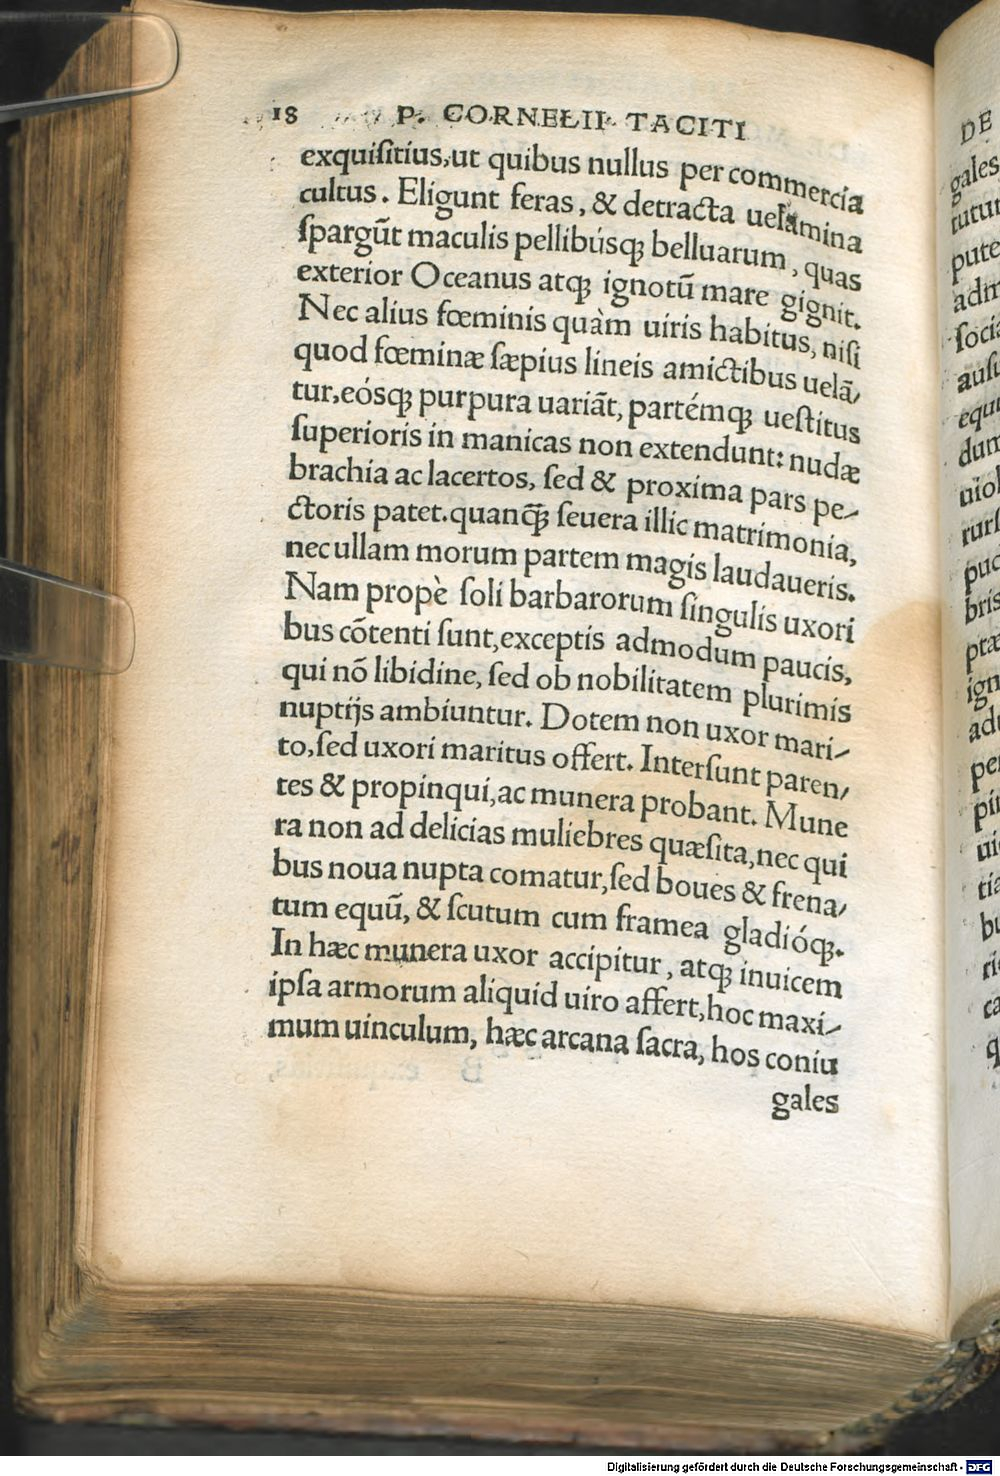 18 P. CORNELII TACITI
exquiſitius,ut quibus nullus per commercia
cultus. Eligunt feras, & detracta uelamina
ſpargūt maculis pellibúsqꝫ belluarum, quas
exterior Oceanus atqꝫ ignotū mare gignit.
Nec alius fœminis quàm uiris habitus, niſi
quod fœminæ ſæpius lineis amictibus uelā/
tur,eósqꝫ purpura uariāt, partémqꝫ ueſtitus
ſuperioris in manicas non extendunt: nudæ
brachia ac lacertos, ſed & proxima pars pe/
ctoris patet.quanq̄ꝫ ſeuera illic matrimonia,
nec ullam morum partem magis laudaueris.
Nam propè ſoli barbarorum ſingulis uxori
bus cōtenti ſunt,exceptis admodum paucis,
qui nō libidine, ſed ob nobilitatem plurimis
nuptijs ambiuntur. Dotem non uxor mari/
to,ſed uxori maritus offert. Interſunt paren/
tes & propinqui,ac munera probant. Mune
ra non ad delicias muliebres quæſita,nec qui
bus noua nupta comatur,ſed boues & frena/
tum equū, & ſcutum cum framea gladióqꝫ.
In hæc munera uxor accipitur, atqꝫ inuicem
ipſa armorum aliquid uiro affert,hoc maxi/
mum uinculum, hæc arcana ſacra, hos coniu
gales
DE
gales
tutu
pute
adm
ſocia
auſu
equ
dum
uiol
rurſ
pud
bris
ptæ
ign
adu
per
pin
ui
tia
bu
ri
ca
q
Digitalisierung gefördert durch die Deutsche Forschungsgemeinschaft - DFG